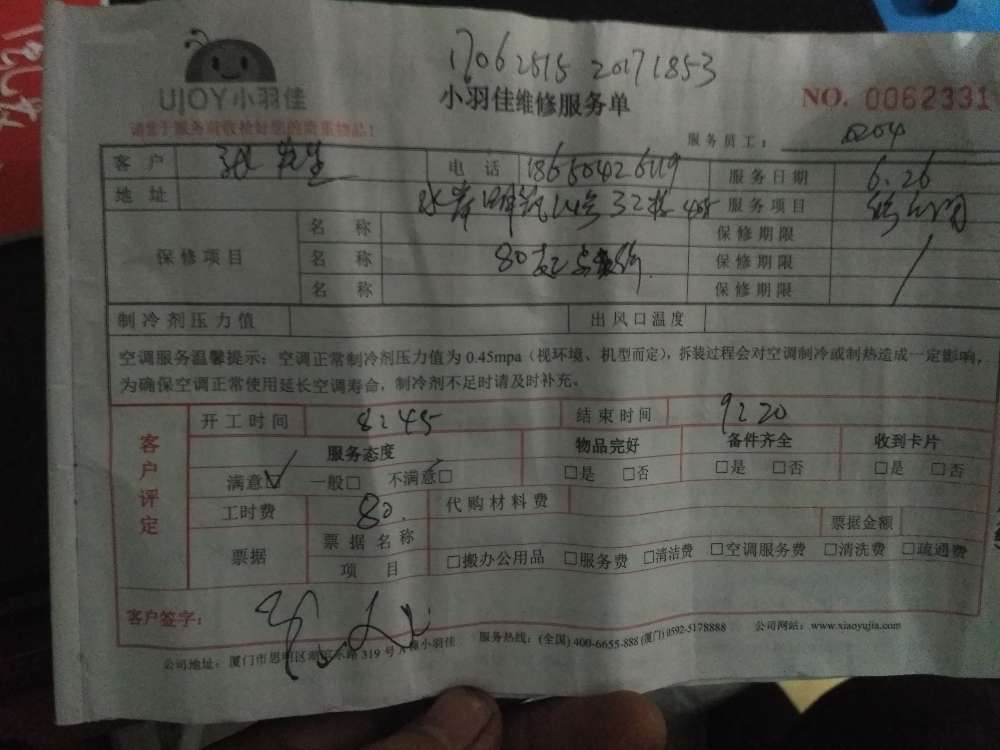 17062515 20171853
UJOY小羽佳
小羽佳维修服务单
NO. 0062331
请客于服务前收检好您的贵重物品!
服务员工: 0204
客户 张先生 电话 18650426119 服务日期 6.26
地址 32栋 服务项目
保修项目
名称 保修期限
名称 80 保修期限
名称 保修期限
制冷剂压力值 出风口温度
空调服务温馨提示:空调正常制冷剂压力值为0.45mpa(视环境、机型而定),拆装过程会对空调制冷或制热造成一定影响,
为确保空调正常使用延长空调寿命,制冷剂不足时请及时补充。
客户评定
开工时间 8:45 结束时间 9:20
服务态度 物品完好 备件齐全 收到卡片
满意☑ 一般□ 不满意□ □是 □否 □是 □否 □是 □否
工时费 80. 代购材料费
票据 票据名称 票据金额
项目 □搬办公用品 □服务费 □清洁费 □空调服务费 □清洗费 □疏通费
客户签字:
公司地址:厦门市思明区 319号 小羽佳 服务热线:(全国)400-6655-888(厦门)0592-5178888 公司网站:www.xiaoyujia.com